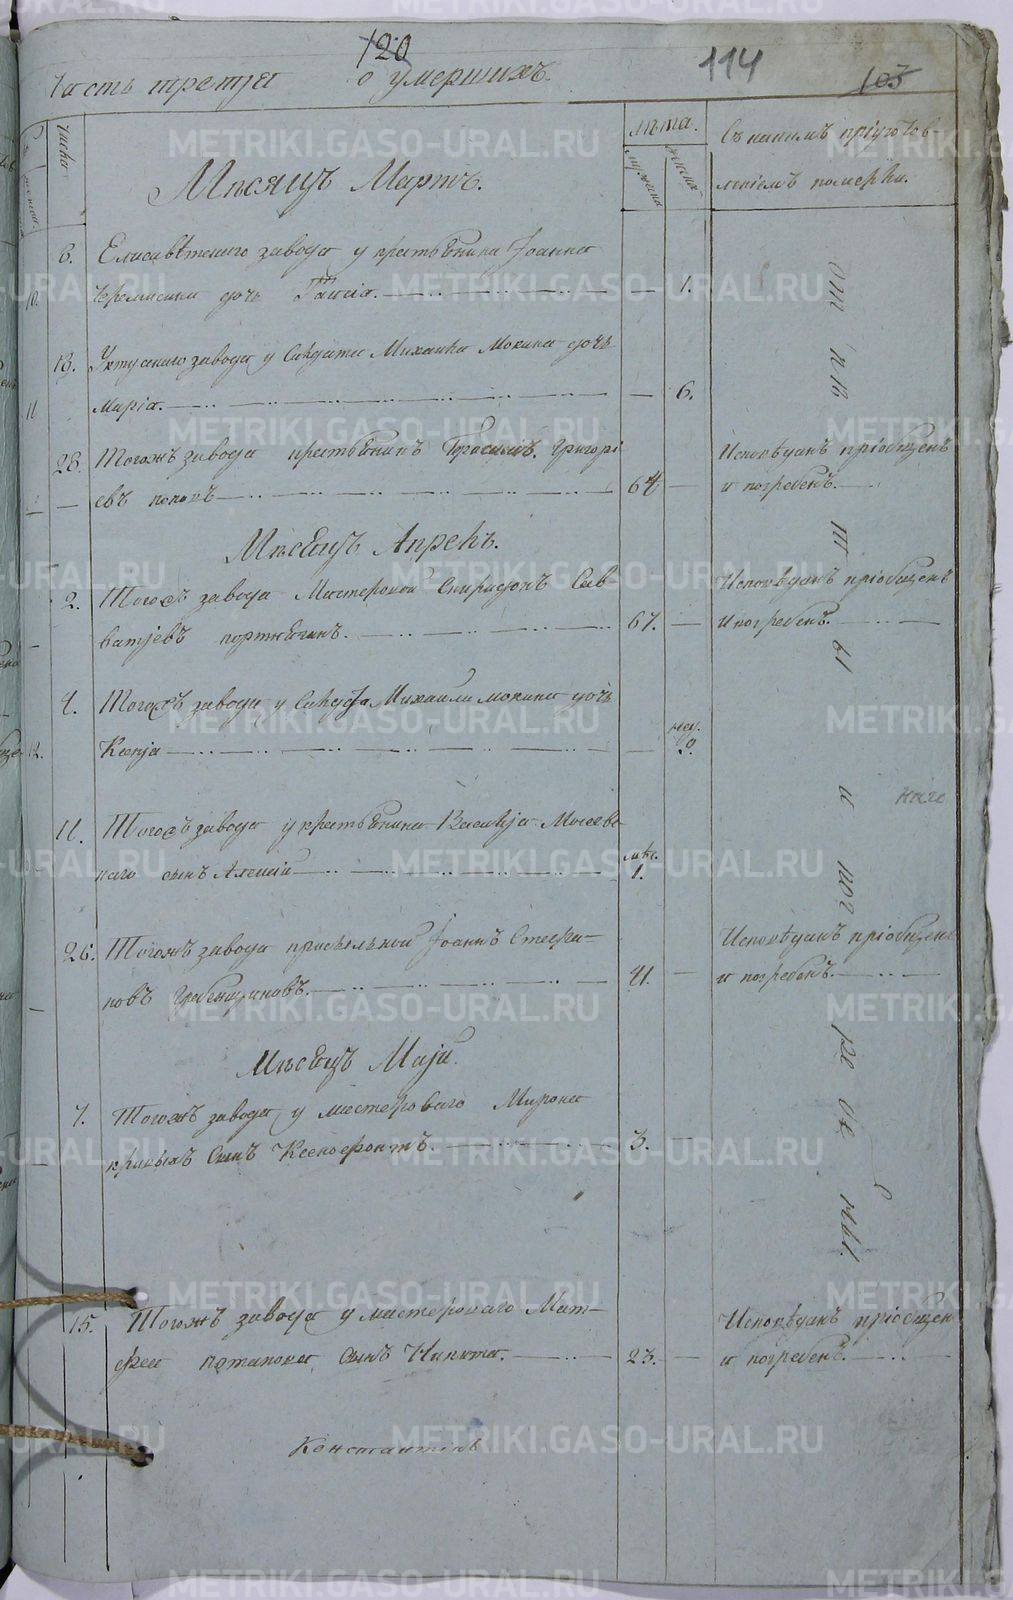 120
114
103
Часть третja о умершихъ.
числа
лѣта.
мужска
женска
Съ какимъ пріуготов
леніемъ померли.
Мѣсяцъ Мартъ.
6. Елисавѣтскаго завода у крестьянина Јоанна
10. Черемисина дочь Таисіа. 1.
13. Уктускаго завода у Солдата Михаила Мокина дочь
11 Маріа. 6.
28. Тогожъ завода крестьянинъ Герасимъ Григорі
евъ поповъ 64
Исповѣданъ пріобщенъ
и погребенъ.
Мѣсяцъ Апрель.
2. Тогожъ завода Мастеровой Спиридонъ Сав-
ватјевъ портнягинъ. 67.
Исповѣданъ пріобщенъ
и погребенъ.
4. Тогожъ завода у Солдата Михаила мокина дочь
12. Ксенја нед. 2.
11. Тогожъ завода у крестьянина Василја Мосеев
скаго сынъ Алексій мѣс. 1.
26. Тогожъ завода присыльной Јоаннъ Стефа-
новъ Гребенщиковъ. 41.
Исповѣданъ пріобщенъ
и погребенъ.
Мѣсяцъ Маји.
7. Тогожъ завода у мастероваго Мирона
кривыхъ Сынъ Ксенофонтъ. 3.
15. Тогожъ завода у мастероваго Мат-
фея потапова Сынъ Никита. 23.
Исповѣданъ пріобщен
и погребенъ.
отпѣты и погребены.
Константинъ
METRIKI.GASO-URAL.RU